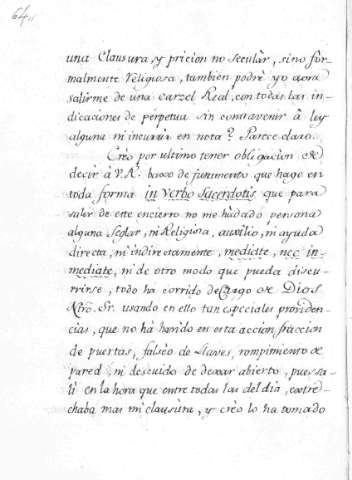 64
una Clausura, y pricion no secular, sino for-
malmente religiosa, tambien podrè yo aora
salirme de una carzel Real, con todas las in-
dicaciones de perpetua sin contravenir â ley
alguna ni incurrir en nota? Parece claro.
Creo por ultimo tener obligacion de
decir â V.R. baxo de juramento que hago en
toda forma in Verbo Sacerdotis que para
salir de este encierro no me hà dado persona
alguna Seglar, ni Religiosa, auxilio, ni ayuda
directa, ni indirectamente, mediate, nec in-
mediate, ni de otro modo que pueda discu-
rrirse, todo ha corrido de Cargo de Dios
Ntro. Sr. usando en ello tan especiales providen-
cias, que no hà havido en esta accion fraccion
de puertas, falseo de llaves, rompimiento de
pared, ni descuido de dexar abierto, pues sa-
lì en la hora que entre todas las del dia, estre-
chaba mas mi clausura, y creo lo ha tomado